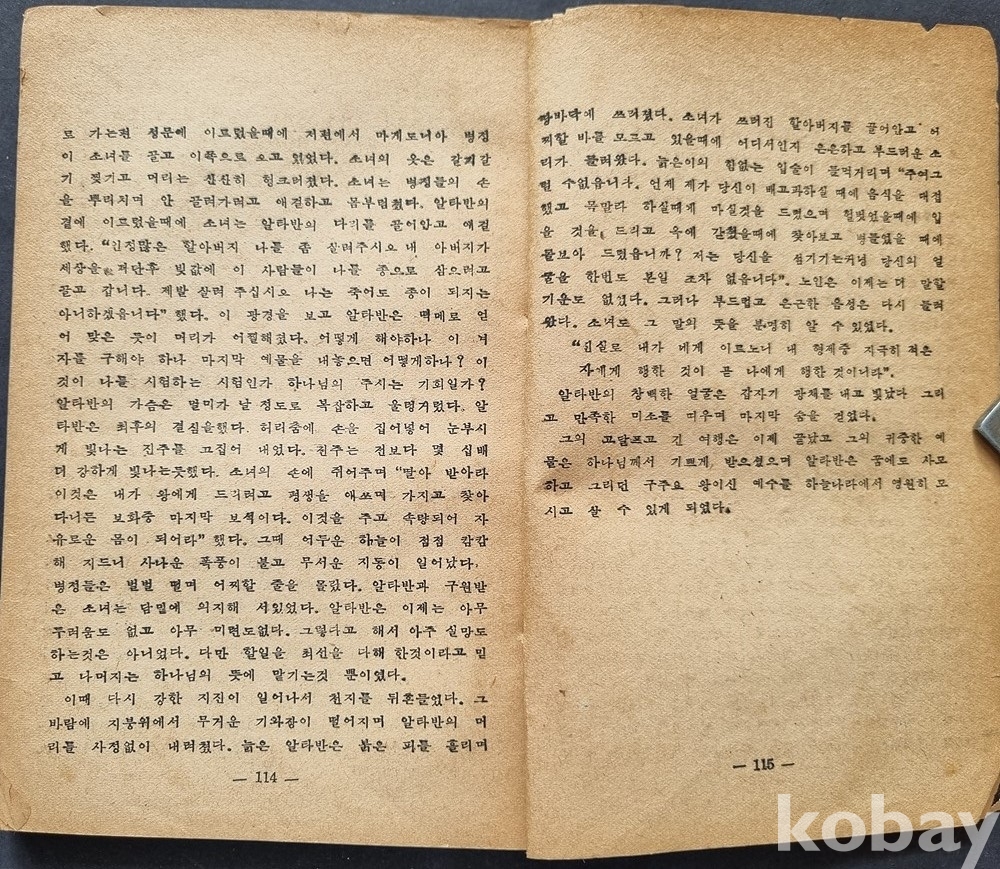 로 가는편 성문에 이르렀을때에 저편에서 마게도니아 병정
이 소녀를 끌고 이쪽으로 오고 있었다. 소녀의 옷은 갈기갈
기 찢기고 머리는 산산히 헝크러졌다. 소녀는 병정들의 손
을 뿌리치며 안 끌려가려고 애걸하고 몸부림쳤다. 알타반의
곁에 이르렀을때에 소녀는 알타반의 다리를 끌어안고 애걸
했다. “인정많은 할아버지 나를 좀 살려주시요 내 아버지가
세상을 떠난후 빚값에 이 사람들이 나를 종으로 삼으려고
끌고 갑니다. 제발 살려 주십시요 나는 죽어도 종이 되지는
아니하겠읍니다” 했다. 이 광경을 보고 알타반은 떡메로 얻
어 맞은 듯이 머리가 어찔해졌다. 어떻게 해야하나 이 여
자를 구해야 하나 마지막 예물을 내놓으면 어떻게하나? 이
것이 나를 시험하는 시험인가 하나님의 주시는 기회일가?
알타반의 가슴은 멀미가 날 정도로 복잡하고 울렁거렸다. 알
타반은 최후의 결심을했다. 허리춤에 손을 집어넣어 눈부시
게 빛나는 진주를 고집어 내었다. 진주는 전보다 몇 십배
더 강하게 빛나는듯했다. 소녀의 손에 쥐어주며 “딸아 받아라
이것은 내가 왕에게 드리려고 평생을 애쓰며 가지고 찾아
다니든 보화중 마지막 보석이다. 이것을 주고 속량되어 자
유로운 몸이 되어라” 했다. 그때 어두운 하늘이 점점 캄캄
해 지드니 사나운 폭풍이 불고 무서운 지동이 일어났다.
병정들은 벌벌 떨며 어찌할 줄을 몰랐다. 알타반과 구원받
은 소녀는 담밑에 의지해 서있었다. 알타반은 이제는 아무
두려움도 없고 아무 미련도없다. 그렇다고 해서 아주 실망도
하는것은 아니었다. 다만 할일을 최선을 다해 한것이라고 믿
고 나머지는 하나님의 뜻에 맡기는것 뿐이였다.
이때 다시 강한 지진이 일어나서 천지를 뒤흔들었다. 그
바람에 지붕위에서 무거운 기와장이 떨어지며 알타반의 머
리를 사정없이 내려쳤다. 늙은 알타반은 붉은 피를 흘리며
— 114 —
땅바닥에 쓰러졌다. 소녀가 쓰러진 할아버지를 끌어안고 어
찌할 바를 모르고 있을때에 어디서인지 은은하고 부드러운 소
리가 들려왔다. 늙은이의 힘없는 입술이 들먹거리며 “주여그
럴 수없읍니다. 언제 제가 당신이 배고파하실 때에 음식을 대접
했고 목말라 하실때게 마실것을 드렸으며 헐벗었을때에 입
을 것을 드리고 옥에 갇혔을때에 찾아보고 병들었을 때에
돌보아 드렸읍니까? 저는 당신을 섬기기는커녕 당신의 얼
굴을 한번도 본일 조차 없읍니다”. 노인은 이제는 더 말할
기운도 없었다. 그러나 부드럽고 은근한 음성은 다시 들려
왔다. 소녀도 그 말의 뜻을 분명히 알 수 있었다.
“진실로 내가 네게 이르노니 내 형제중 지극히 적은
자에게 행한 것이 곧 나에게 행한 것이니라”.
알타반의 창백한 얼굴은 갑자기 광채를 내고 빛났다 그리
고 만족한 미소를 띠우며 마지막 숨을 걷었다.
그의 고달프고 긴 여행은 이제 끝났고 그의 귀중한 예
물은 하나님께서 기쁘게 받으셨으며 알타반은 꿈에도 사모
하고 그리던 구주요 왕이신 예수를 하늘나라에서 영원히 모
시고 살 수 있게 되였다.
— 115 —
kobay